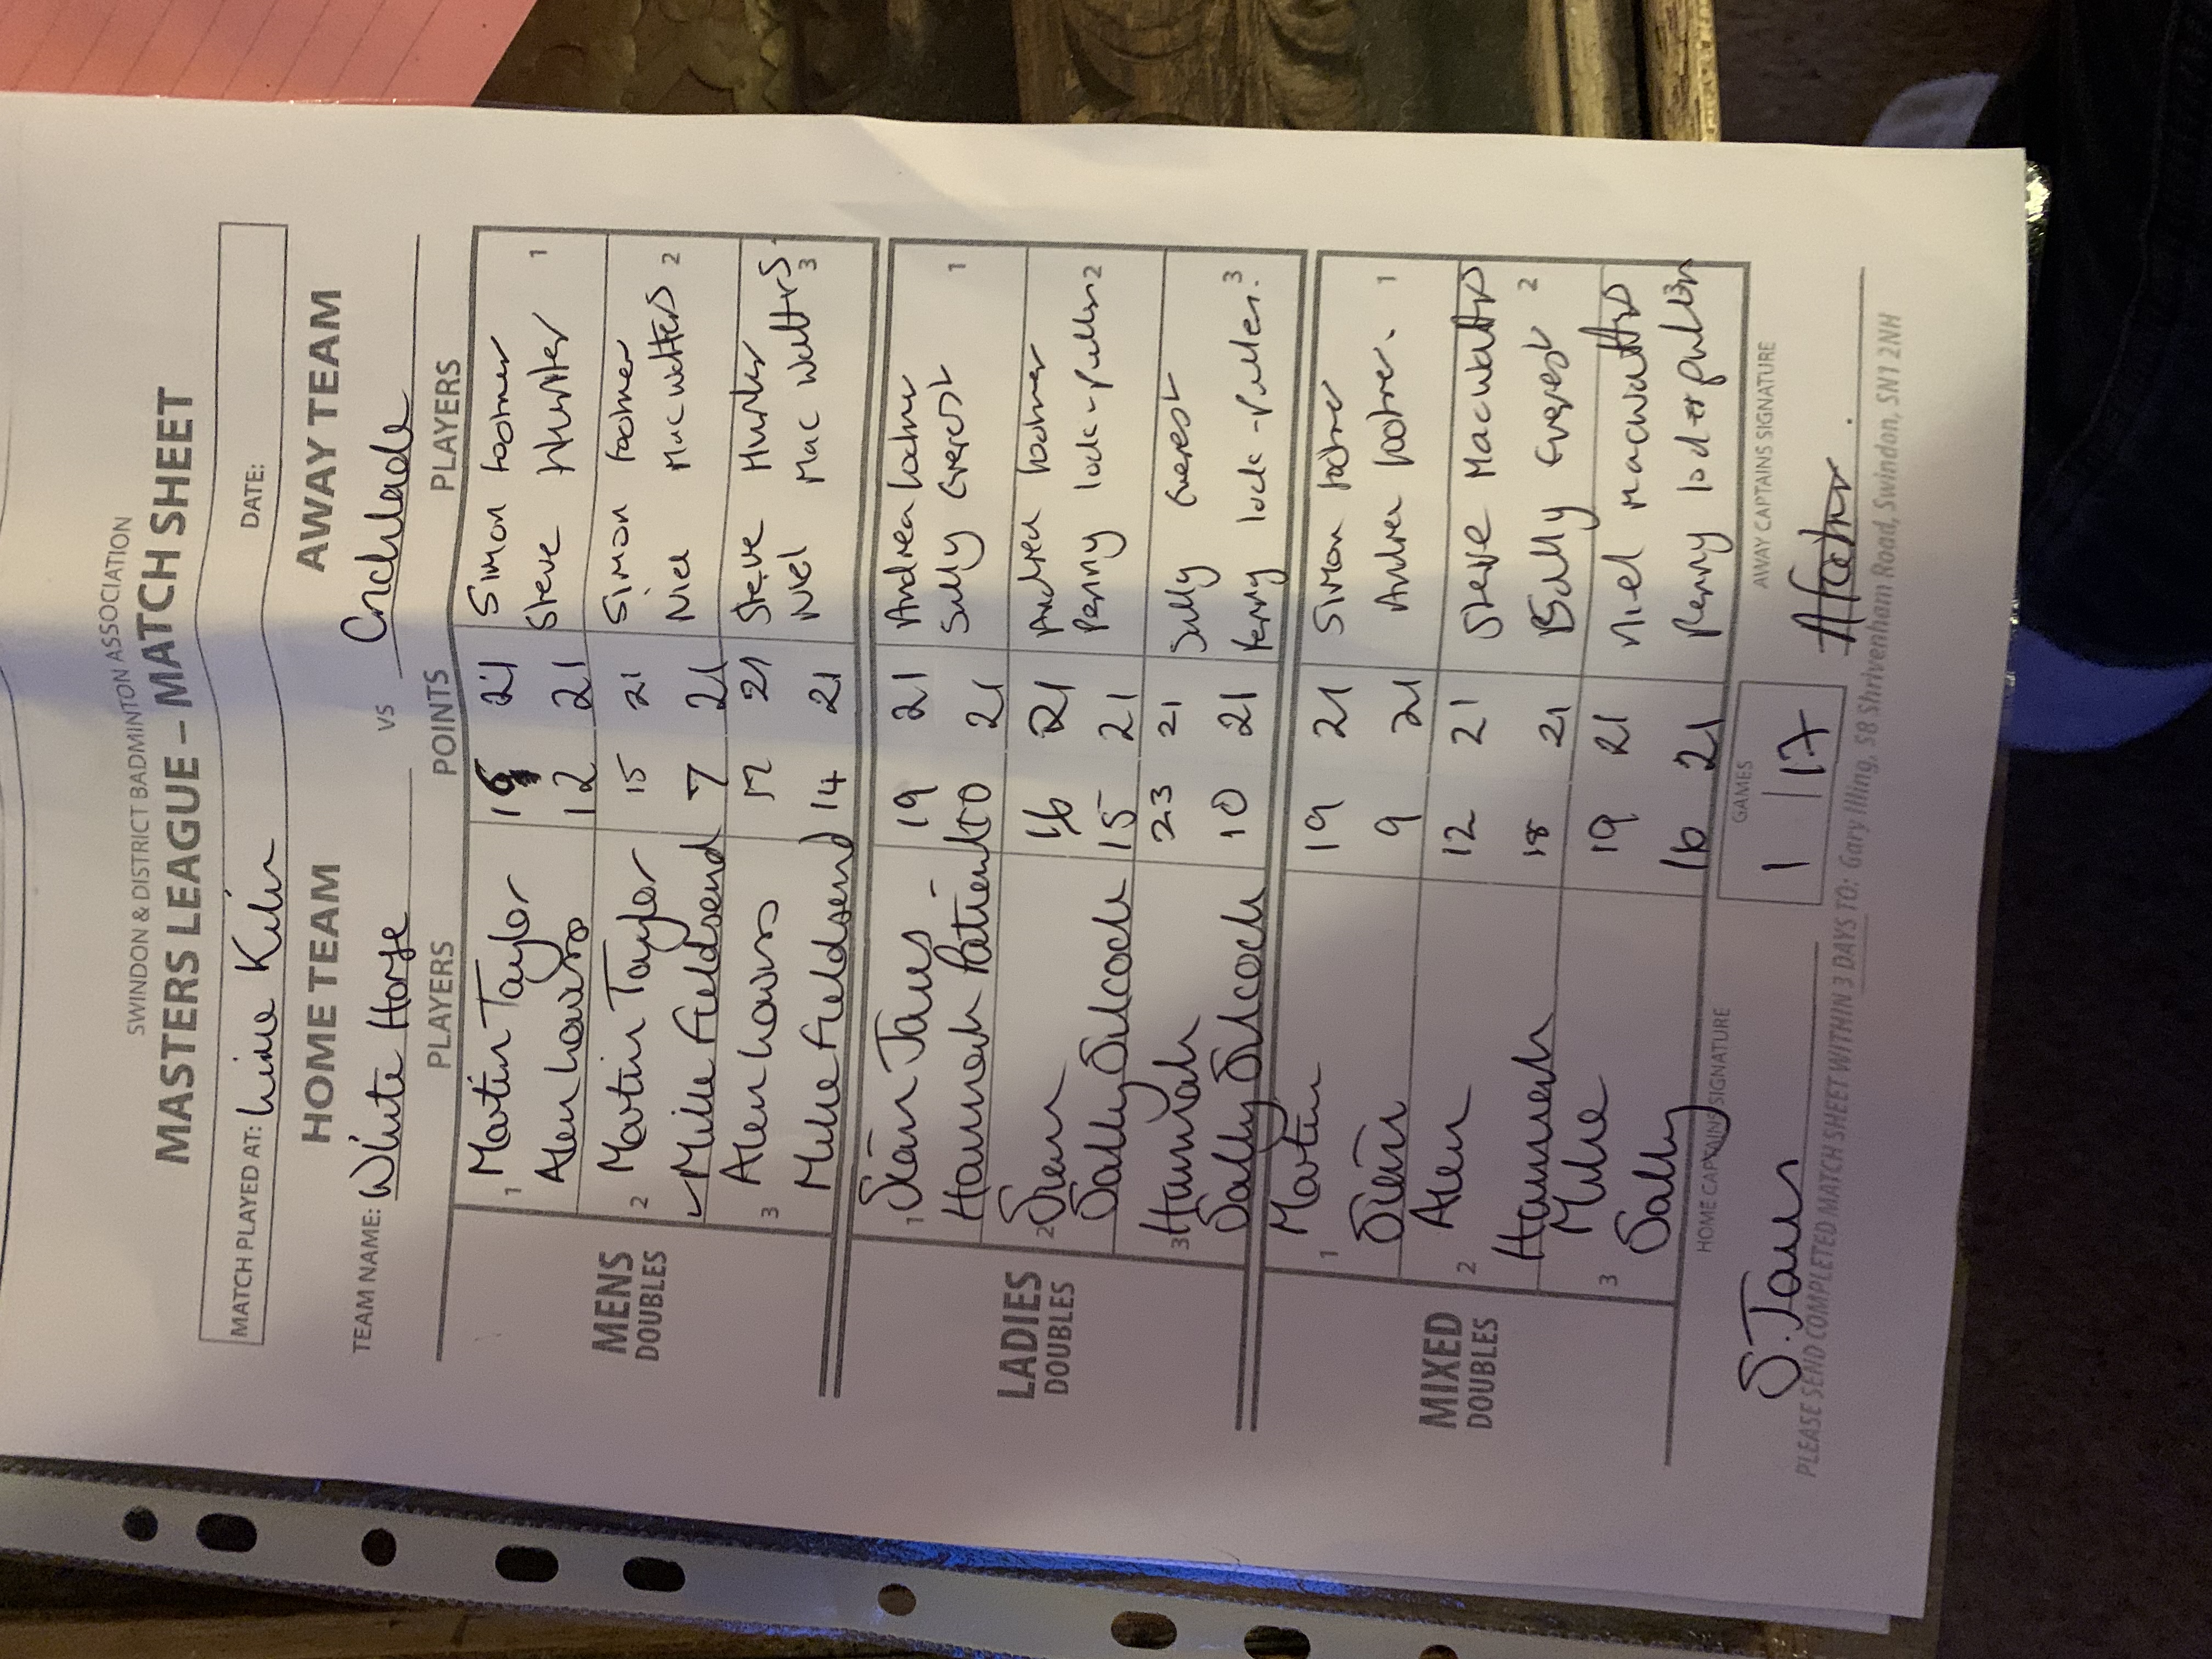 SWINDON & DISTRICT BADMINTON ASSOCIATION
MASTERS LEAGUE – MATCH SHEET
MATCH PLAYED AT: Lime Kiln DATE:
HOME TEAM AWAY TEAM
TEAM NAME: White Horse VS Cricklade
PLAYERS POINTS PLAYERS
MENS DOUBLES
1 Martin Taylor 21 Simon Footner 1
12 21 Steve Hunter
2 Martin Taylor 15 21 Simon Footner
Mike Fieldsend 7 21 Niel Macwatters 2
3 17 21 Steve Hunter
Mike Fieldsend 14 21 Niel Mac Watters 3
LADIES DOUBLES
1 Siân 19 21 Andrea Footner
Hannah 10 21 Sally Everest 1
2 Sian 16 21 Andrea Footner
Sally Silcock 15 21 Penny Lock-Pullen 2
3 Hannah 23 21 Sally Everest
Sally Silcock 10 21 Penny Lock-Pullen. 3
MIXED DOUBLES
1 Martin 19 21 Simon Footner
Siân 9 21 Andrea Footner. 1
2 Alan 12 21 Steve Macwatters
Hannah 18 21 Sally Everest 2
3 Mike 19 21 Niel Macwatters
Sally 16 21 Penny 3
HOME CAPTAINS SIGNATURE GAMES AWAY CAPTAINS SIGNATURE
1 17
PLEASE SEND COMPLETED MATCH SHEET WITHIN 3 DAYS TO: Gary Illing, 58 Shrivenham Road, Swindon, SN1 2NH